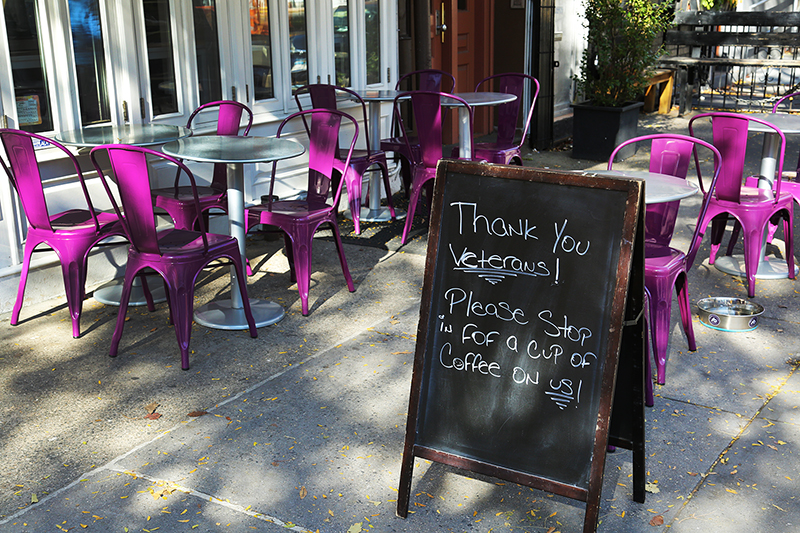 Thank You
Veterans!
Please Stop
in For a cup of
Coffee on us!